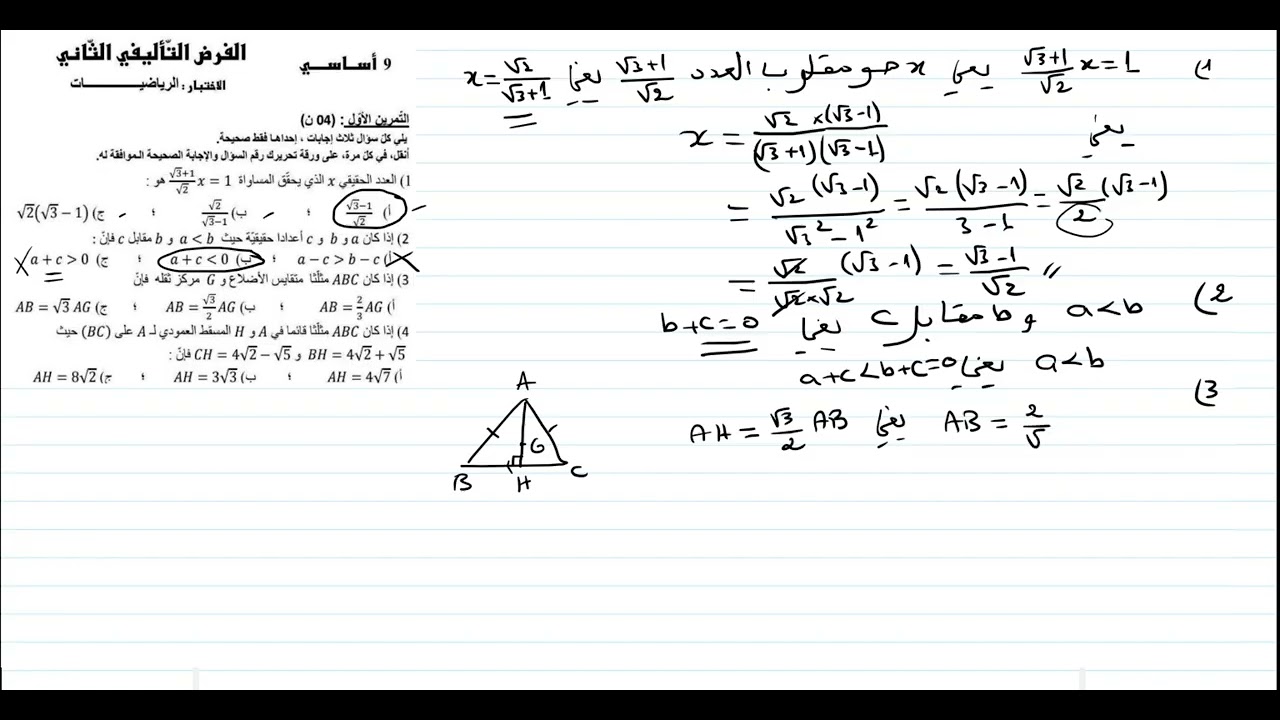 9 أساسي
الفرض التأليفي الثاني
الاختبار : الرياضيـــات
التمرين الأول : (04 ن)
يلي كل سؤال ثلاث إجابات ، إحداها فقط صحيحة.
أنقل، في كل مرة، على ورقة تحريرك رقم السؤال والإجابة الصحيحة الموافقة له.
1) العدد الحقيقي x الذي يحقق المساواة \frac{√3+1}{√2} x = 1 هو :
أ) \frac{√3−1}{√2} ؛ ب) \frac{√2}{√3−1} ؛ ج) √2(√3 − 1)
2) إذا كان a و b و c أعدادا حقيقية حيث a < b و b مقابل c فإن :
أ) a − c > b − c ؛ ب) a + c < 0 ؛ ج) a + c > 0
3) إذا كان ABC مثلثا متقايس الأضلاع و G مركز ثقله فإن
أ) AB = \frac{2}{3} AG ؛ ب) AB = \frac{√3}{2} AG ؛ ج) AB = √3 AG
4) إذا كان ABC مثلثا قائما في A و H المسقط العمودي لـ A على (BC) حيث
BH = 4√2 + √5 و CH = 4√2 − √5 فإن :
أ) AH = 4√7 ؛ ب) AH = 3√3 ؛ ج) AH = 8√2
1) \frac{√3+1}{√2} x = 1 يعني x هو مقلوب العدد \frac{√3+1}{√2} يعني x = \frac{√2}{√3+1}
يعني x = \frac{√2 ×(√3−1)}{(√3+1)(√3−1)}
= \frac{√2 (√3−1)}{√3² − 1²} = \frac{√2 (√3−1)}{3−1} = \frac{√2}{2} (√3−1)
= \frac{√2}{√2×√2} (√3−1) = \frac{√3−1}{√2} "
2) a < b و b مقابل c يعني b+c=0
a < b يعني a+c < b+c=0
3) AB = \frac{2}{√} يعني AH = \frac{√3}{2} AB
A
G
B
H
C